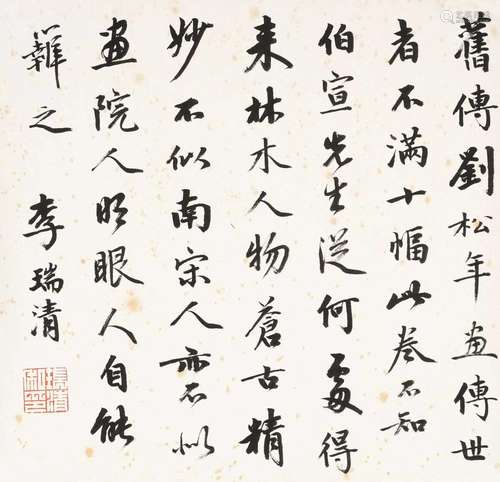 舊傳劉松年畫傳世
者不滿十幅此卷不知
伯宣先生從何處得
来林木人物蒼古精
妙不似南宋人亦不似
畫院人明眼人自能
辨之 李瑞清